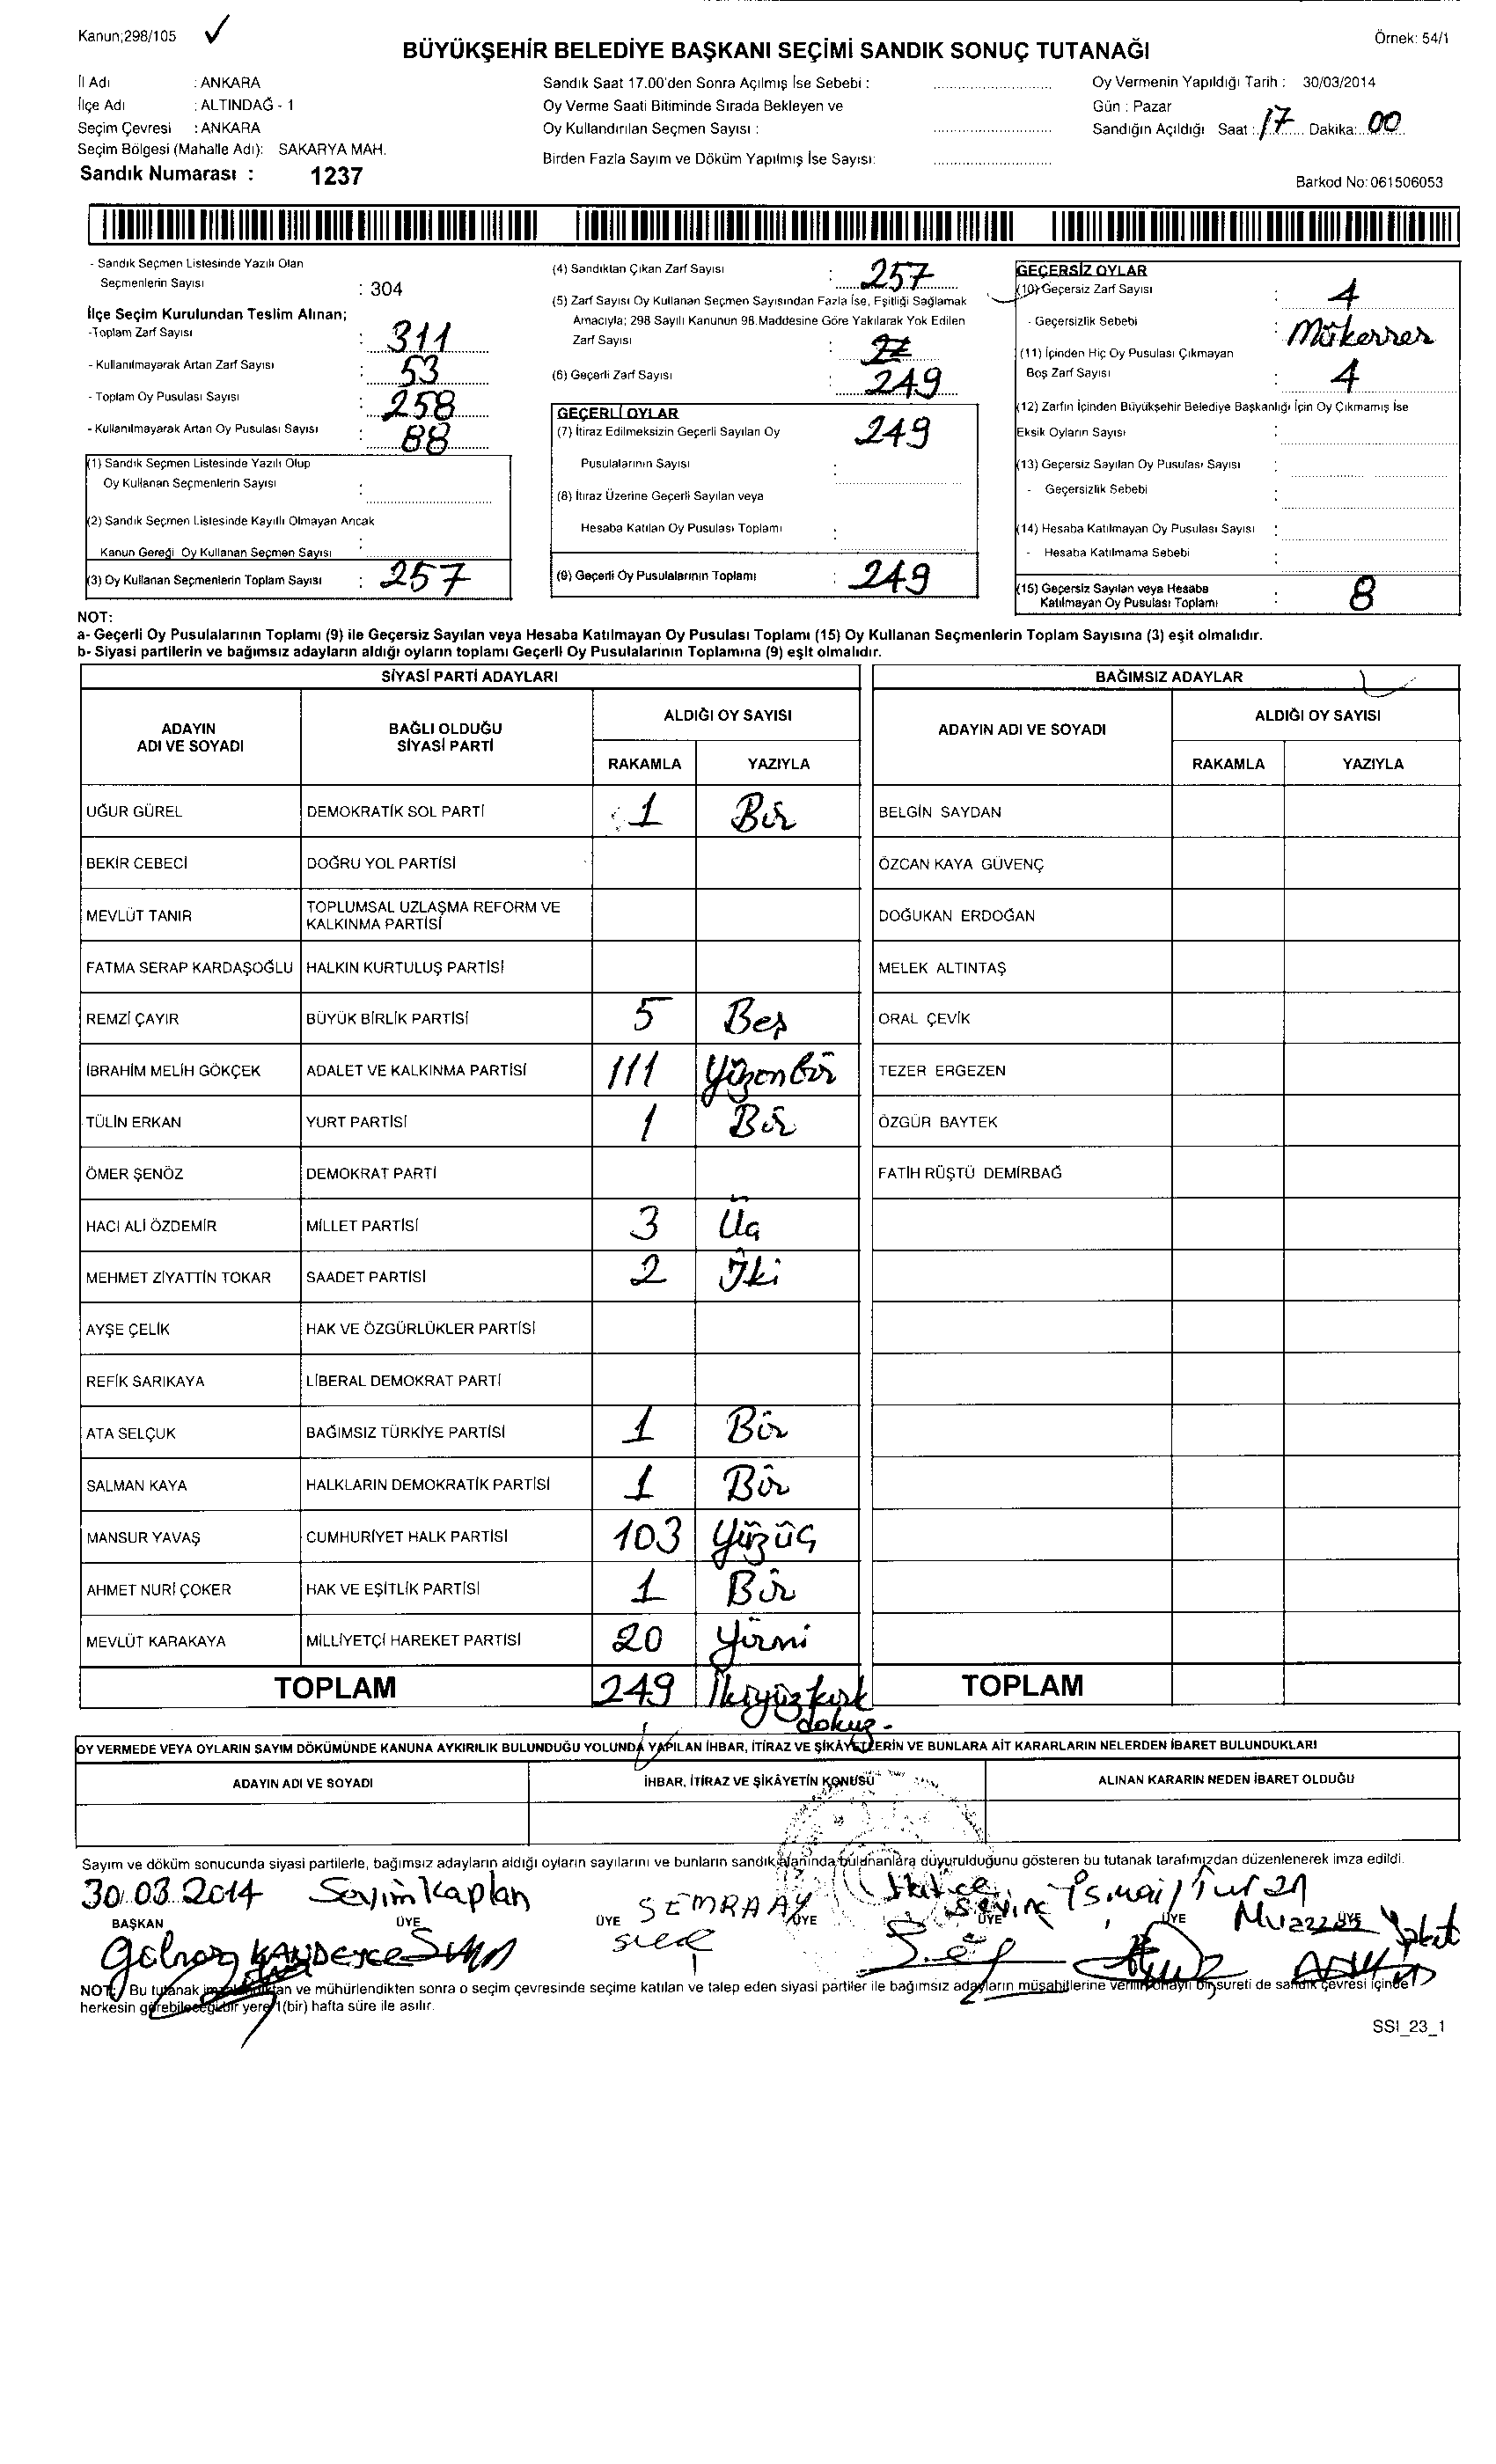 Kanun;298/105 ✓
Örnek: 54/1
BÜYÜKŞEHİR BELEDİYE BAŞKANI SEÇİMİ SANDIK SONUÇ TUTANAĞI
İl Adı : ANKARA
İlçe Adı : ALTINDAĞ - 1
Seçim Çevresi : ANKARA
Seçim Bölgesi (Mahalle Adı): SAKARYA MAH.
Sandık Numarası : 1237
Sandık Saat 17.00'den Sonra Açılmış İse Sebebi :
Oy Verme Saati Bitiminde Sırada Bekleyen ve
Oy Kullandırılan Seçmen Sayısı :
Birden Fazla Sayım ve Döküm Yapılmış İse Sayısı:
Oy Vermenin Yapıldığı Tarih : 30/03/2014
Gün : Pazar
Sandığın Açıldığı Saat : 17 Dakika: 00
Barkod No:061506053
- Sandık Seçmen Listesinde Yazılı Olan
Seçmenlerin Sayısı : 304
İlçe Seçim Kurulundan Teslim Alınan;
-Toplam Zarf Sayısı : 311
- Kullanılmayarak Artan Zarf Sayısı : 53
- Toplam Oy Pusulası Sayısı : 258
- Kullanılmayarak Artan Oy Pusulası Sayısı : 88
(1) Sandık Seçmen Listesinde Yazılı Olup
Oy Kullanan Seçmenlerin Sayısı :
(2) Sandık Seçmen Listesinde Kayıtlı Olmayan Ancak
Kanun Gereği Oy Kullanan Seçmen Sayısı :
(3) Oy Kullanan Seçmenlerin Toplam Sayısı : 257
(4) Sandıktan Çıkan Zarf Sayısı : 257
(5) Zarf Sayısı Oy Kullanan Seçmen Sayısından Fazla İse, Eşitliği Sağlamak
Amacıyla; 298 Sayılı Kanunun 98.Maddesine Göre Yakılarak Yok Edilen
Zarf Sayısı :
(6) Geçerli Zarf Sayısı : 249
GEÇERLİ OYLAR
(7) İtiraz Edilmeksizin Geçerli Sayılan Oy 249
Pusulalarının Sayısı :
(8) İtiraz Üzerine Geçerli Sayılan veya
Hesaba Katılan Oy Pusulası Toplamı :
(9) Geçerli Oy Pusulalarının Toplamı : 249
GEÇERSİZ OYLAR
(10) Geçersiz Zarf Sayısı : 4
- Geçersizlik Sebebi : Mükerrer
(11) İçinden Hiç Oy Pusulası Çıkmayan
Boş Zarf Sayısı : 4
(12) Zarfın İçinden Büyükşehir Belediye Başkanlığı İçin Oy Çıkmamış İse
Eksik Oyların Sayısı :
(13) Geçersiz Sayılan Oy Pusulası Sayısı :
- Geçersizlik Sebebi :
(14) Hesaba Katılmayan Oy Pusulası Sayısı :
- Hesaba Katılmama Sebebi :
(15) Geçersiz Sayılan veya Hesaba
Katılmayan Oy Pusulası Toplamı : 8
NOT:
a- Geçerli Oy Pusulalarının Toplamı (9) ile Geçersiz Sayılan veya Hesaba Katılmayan Oy Pusulası Toplamı (15) Oy Kullanan Seçmenlerin Toplam Sayısına (3) eşit olmalıdır.
b- Siyasi partilerin ve bağımsız adayların aldığı oyların toplamı Geçerli Oy Pusulalarının Toplamına (9) eşit olmalıdır.
SİYASİ PARTİ ADAYLARI
ADAYIN ADI VE SOYADI BAĞLI OLDUĞU SİYASİ PARTİ ALDIĞI OY SAYISI
RAKAMLA YAZIYLA
UĞUR GÜREL DEMOKRATİK SOL PARTİ 1 Bir
BEKİR CEBECİ DOĞRU YOL PARTİSİ
MEVLÜT TANIR TOPLUMSAL UZLAŞMA REFORM VE KALKINMA PARTİSİ
FATMA SERAP KARDAŞOĞLU HALKIN KURTULUŞ PARTİSİ
REMZİ ÇAYIR BÜYÜK BİRLİK PARTİSİ 5 Beş
İBRAHİM MELİH GÖKÇEK ADALET VE KALKINMA PARTİSİ 111 Yüzonbir
TÜLİN ERKAN YURT PARTİSİ 1 Bir
ÖMER ŞENÖZ DEMOKRAT PARTİ
HACI ALİ ÖZDEMİR MİLLET PARTİSİ 3 Üç
MEHMET ZİYATTİN TOKAR SAADET PARTİSİ 2 İki
AYŞE ÇELİK HAK VE ÖZGÜRLÜKLER PARTİSİ
REFİK SARIKAYA LİBERAL DEMOKRAT PARTİ
ATA SELÇUK BAĞIMSIZ TÜRKİYE PARTİSİ 1 Bir
SALMAN KAYA HALKLARIN DEMOKRATİK PARTİSİ 1 Bir
MANSUR YAVAŞ CUMHURİYET HALK PARTİSİ 103 Yüzüç
AHMET NURİ ÇOKER HAK VE EŞİTLİK PARTİSİ 1 Bir
MEVLÜT KARAKAYA MİLLİYETÇİ HAREKET PARTİSİ 20 Yirmi
TOPLAM 249 İkiyüzkırk
dokuz
BAĞIMSIZ ADAYLAR
ADAYIN ADI VE SOYADI ALDIĞI OY SAYISI
RAKAMLA YAZIYLA
BELGİN SAYDAN
ÖZCAN KAYA GÜVENÇ
DOĞUKAN ERDOĞAN
MELEK ALTINTAŞ
ORAL ÇEVİK
TEZER ERGEZEN
ÖZGÜR BAYTEK
FATİH RÜŞTÜ DEMİRBAĞ
TOPLAM
OY VERMEDE VEYA OYLARIN SAYIM DÖKÜMÜNDE KANUNA AYKIRILIK BULUNDUĞU YOLUNDA YAPILAN İHBAR, İTİRAZ VE ŞİKÂYETLERİN VE BUNLARA AİT KARARLARIN NELERDEN İBARET BULUNDUKLARI
ADAYIN ADI VE SOYADI İHBAR, İTİRAZ VE ŞİKÂYETİN KONUSU ALINAN KARARIN NEDEN İBARET OLDUĞU
Sayım ve döküm sonucunda siyasi partilerle, bağımsız adayların aldığı oyların sayılarını ve bunların sandık alanında bulunanlara duyurulduğunu gösteren bu tutanak tarafımızdan düzenlenerek imza edildi.
30.03.2014 Sevim Kaplan SEMRA AY Hatice Sevinç İsmail Turan Muazzez
BAŞKAN ÜYE ÜYE ÜYE ÜYE ÜYE ÜYE
NOT: Bu tutanak imzalandıktan ve mühürlendikten sonra o seçim çevresinde seçime katılan ve talep eden siyasi partiler ile bağımsız adayların müşahitlerine verilir. Onaylı bir sureti de sandık çevresi içinde
herkesin görebileceği bir yere 1(bir) hafta süre ile asılır.
SSI_23_1